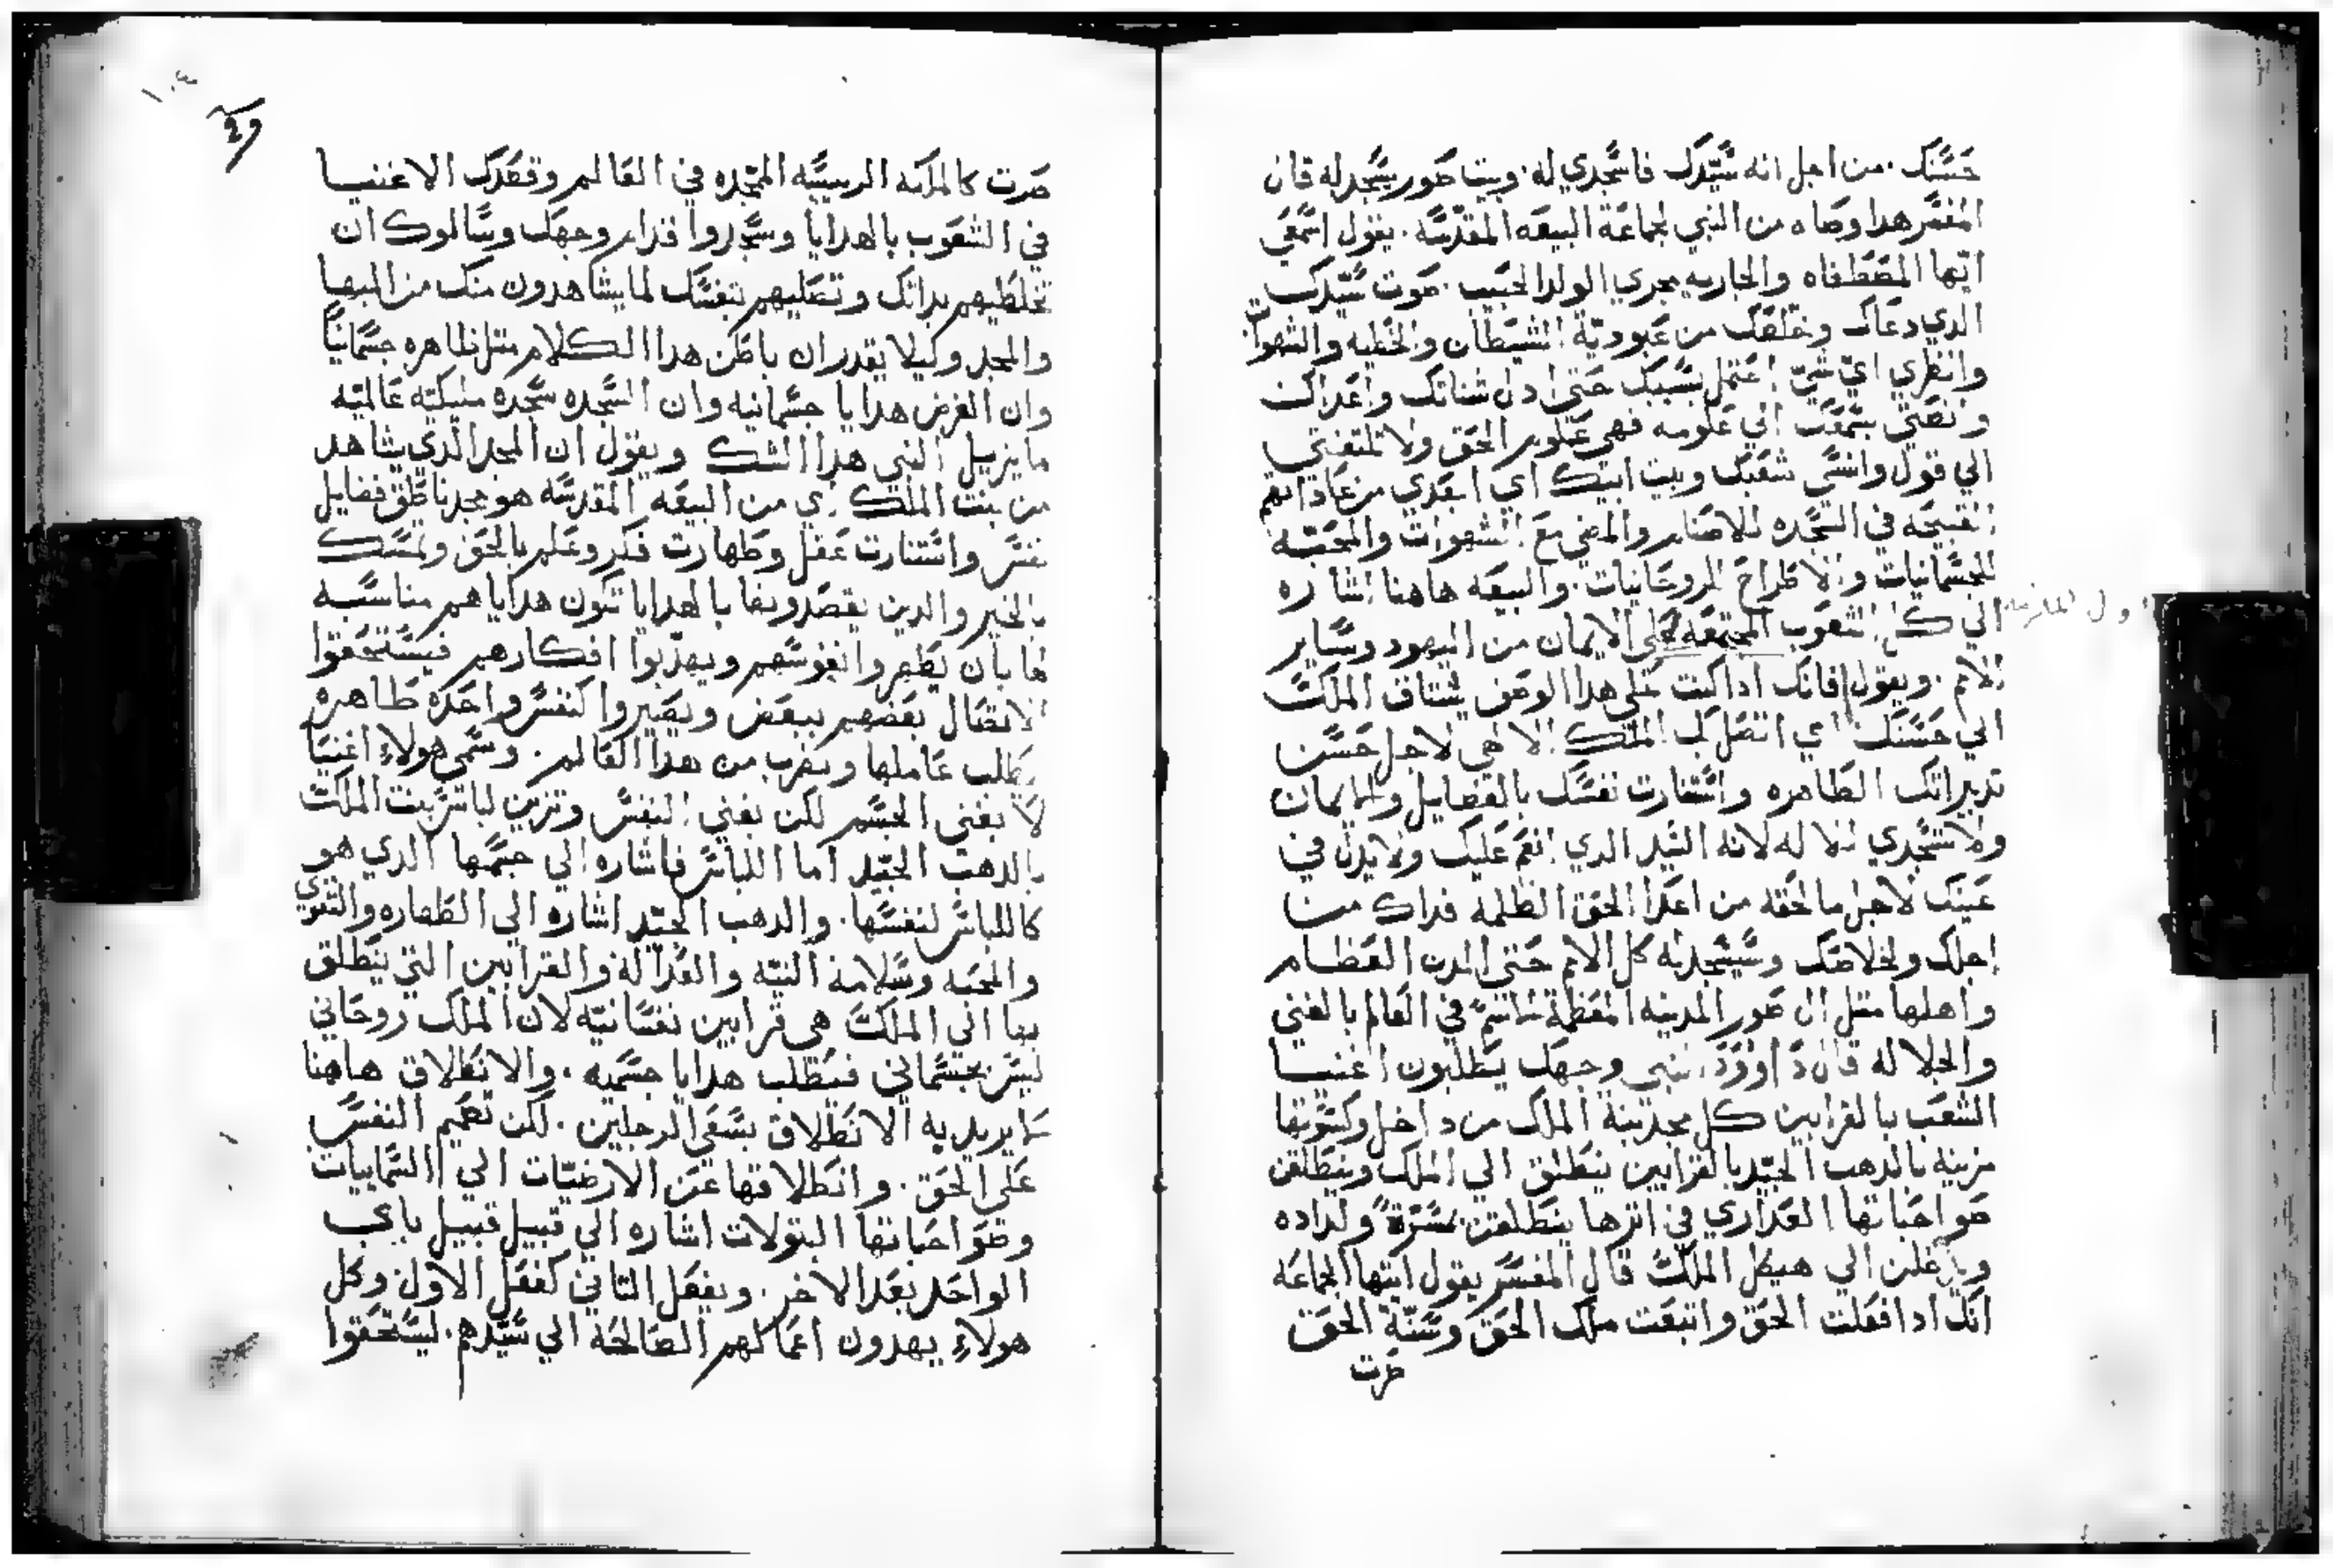 حسنك. من اجل انه سيدك فاسجدي له. وبيت صور يسجد له قال
المفسر هدا وصاه من النبي لجماعة البيعه المقدسه. يقول اسمعي
ايها المصطفاه والجاريه مجري الولد الحبيب. صوت سيدك
الدي دعاك وخلصك من عبودية الشيطان والخطيه والشهوات
وانظري اي شي اعتمل بسببك حتي ادل شناتك واعداك
ونصتي بسمعك الي علومه فهي علوم الحق ولا تلتفتي
الي قول وانسي شعبك وبيت ابيك اي ابعدي من عاداتهم
القبيحه في السجده للاصنام والمضي مع الشهوات والمحبه
للجسمانيات والاطراح للروحانيات. والبيعه هاهنا اشاره
الي كل الشعوب المجتمعه علي الايمان من اليهود وساير
الامم. ويقول فانك ادا كنت علي هدا الوصف يشتاق الملك
الي حسنك اي اتصل بك الملك الاهي لاجل حسن
تدبيراتك الطاهره واستنارت نفسك بالفضايل والايمان
ولا تسجدي الا له لانه السيد الدي انعم عليك ولا يدل في
عينك لاجل ما لحقه من اعدا الحق الظلمه فداك من
اجلك ولخلاصك وسيسجد له كل الامم حتي المدن العظام
واهلها متل ال صور المدينه المعظمة في العالم بالغني
والجلاله قال داوود النبي وجهك يطلبون اغنيا
الشعب بالقرابين كل مجد بنة الملك من داخل وكسوتها
مزينه بالدهب الجيد بالقرابين ينطلق الي الملك وينطلقن
صواحباتها العداري في اترها ينطلقن بمسرة ولداده
ويدخلن الي هيكل الملك قال المفسر يقول ايتها الجماعه
انك ادا فعلت الحق واتبعت ملك الحق وسنة الحق
صرت
اول
صرت كالملكه الرييسه الممجده في العالم وقصدك الاغنيا
في الشعوب بالهدايا وسجدوا قدام وجهك وسالوك ان
تخلطيهم بداتك وتصليهم بنفسك لما يشاهدون منك من البها
والمجد وكيلا يقدر ان باطن هدا الكلام متل ظاهره جسمانيا
وان الغرض هدايا جسمانيه وان السجده سجده مليكيه عالميه
ما يزيل النبي هدا الشك ويقول ان المجد الدي يشاهد
من بنت الملك اي من البيعه المقدسه هو مجد باطن فضايل
نفس واستنارت عقل وطهارت فكر وعلم بالحق وتمسك
بالخير والدين يقصدونها بالهدايا تكون هداياهم مناسبه
لها بان يطهروا نفوسهم ويهدبوا افكارهم فيستحقوا
الاتصال بعضهم ببعض ويصيروا كنفس واحده طاهره
تطلب عاملها وتقرب من هدا العالم. وسمي هولاء اغنيا
لا بغني الجسم لكن بغني النفس وتزين لباس بنت الملك
بالدهب الجيد اما اللباس فاشاره الي جسمها الدي هو
كاللباس لنفسها. والدهب الجيد اشاره الي الطهاره والتقوي
والمحبه وسلامة النيه والعداله والقرابين التي ينطلق
بها الي الملك هي قرابين نفسانيه لان الملك روحاني
ليس بجسماني فيطلب هدايا جسميه. والانطلاق هاهنا
ما يريد به الانطلاق بسعي الرجلين. لكن تصميم النفس
علي الحق. وانطلاقها عن الارضيات الي السماييات
وصواحباتها البتولات اشاره الي قبيل قبيل ياتي
الواحد بعد الاخر. ويفعل التاني كفعل الاول وكل
هولاء يهدون اعمالهم الصالحة الي سيدهم. ليستحقوا